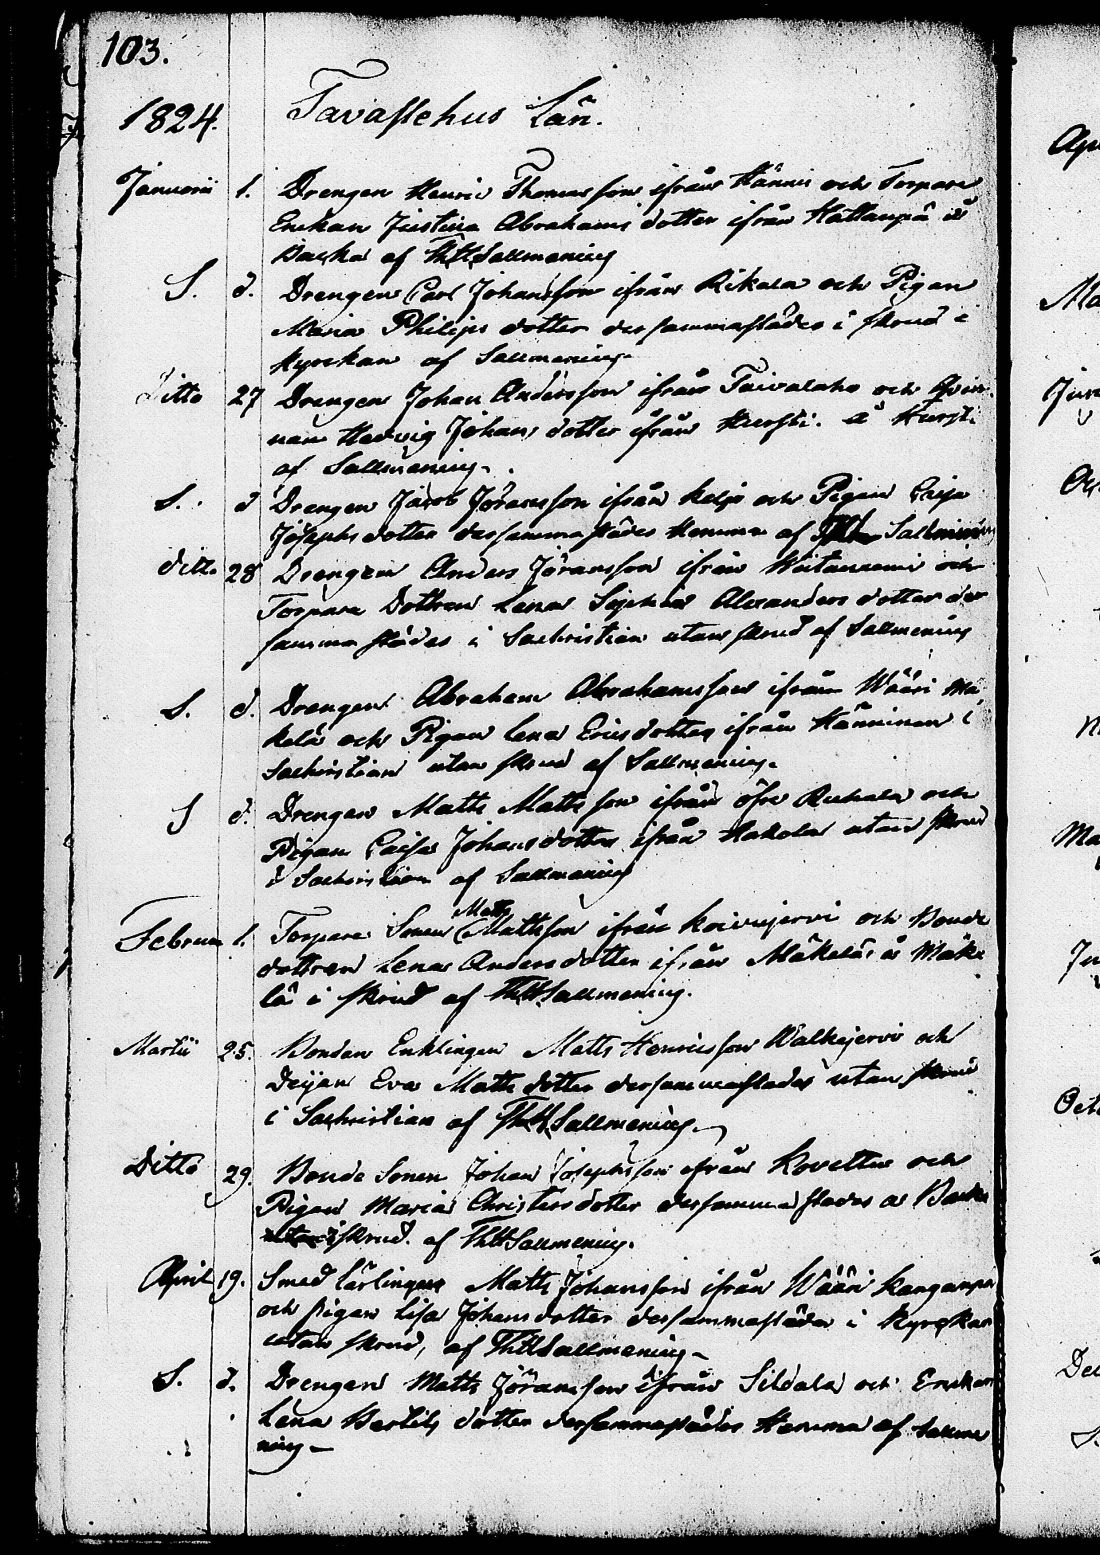 103.
1824. Tavastehus Län.
Januarii 1. Drengen Henric Thomasson ifrån Hännis och Torpare
Enckan Justina Abrahams dotter ifrån Hattanpä å
Backa af Th.H. Sallmening
S. d. Drengen Carl Johansson ifrån Rikala och Pigan
Maria Philips dotter dersammastädes i skrud i
kyrckan af Sallmening
Ditto 27 Drengen Johan Andersson ifrån Taivalaho och Qvin
nan Hedvig Johans dotter ifrån Kursti. å Kursti
af Sallmening.
S. d Drengen Jacob Jöransson ifrån Keljo och Pigan Caisa
Josephs dotter dersammastädes hemma af Sallmening
ditto 28 Drengen Anders Jöransson ifrån och
Torpare Dottren Lena Sophia Alexanders dotter der
samma städes i Sachristian utan skrud af Sallmening
S. d. Drengen Abraham Abrahamsson ifrån Wääri Mä
kelä och Pigan Lena Ericsdotter ifrån Hänninen i
Sachristian utan skrud af Sallmening.
S d. Drengen Matts Mattsson ifrån öfre och
Pigan Caisa Johansdotter ifrån Hakola utan skrud
i Sachristian af Sallmening
Februari 1. Torpare Sonen Matts Mattsson ifrån Koivujervi och Bonde
dottren Lena Andersdotter ifrån Mäkelä å Mäke
lä i skrud af Th.H. Sallmening.
Martii 25. Bonden Enklingen Matts Henricsson Walkejervi och
Deijan Eva Matts dotter dersammastädes utan skrud
i Sachristian af Th.H. Sallmening.
Ditto 29. Bonde Sonen Johan Josephsson ifrån och
Pigan Maria Christersdotter dersammastädes å Backa
utan i skrud. af Th.H. Sallmening.
April 19. Smed Lärlingen Matts Johansson ifrån Wääri Kanganpä
och pigan Lisa Johansdotter dersammastädes i Kyrckan
utan skrud, af Th.H. Sallmening
S. d. Drengen Matts Jöransson ifrån Sildala och Enckan
Lena Bertils dotter dersammastädes Hemma af Sallme
ning